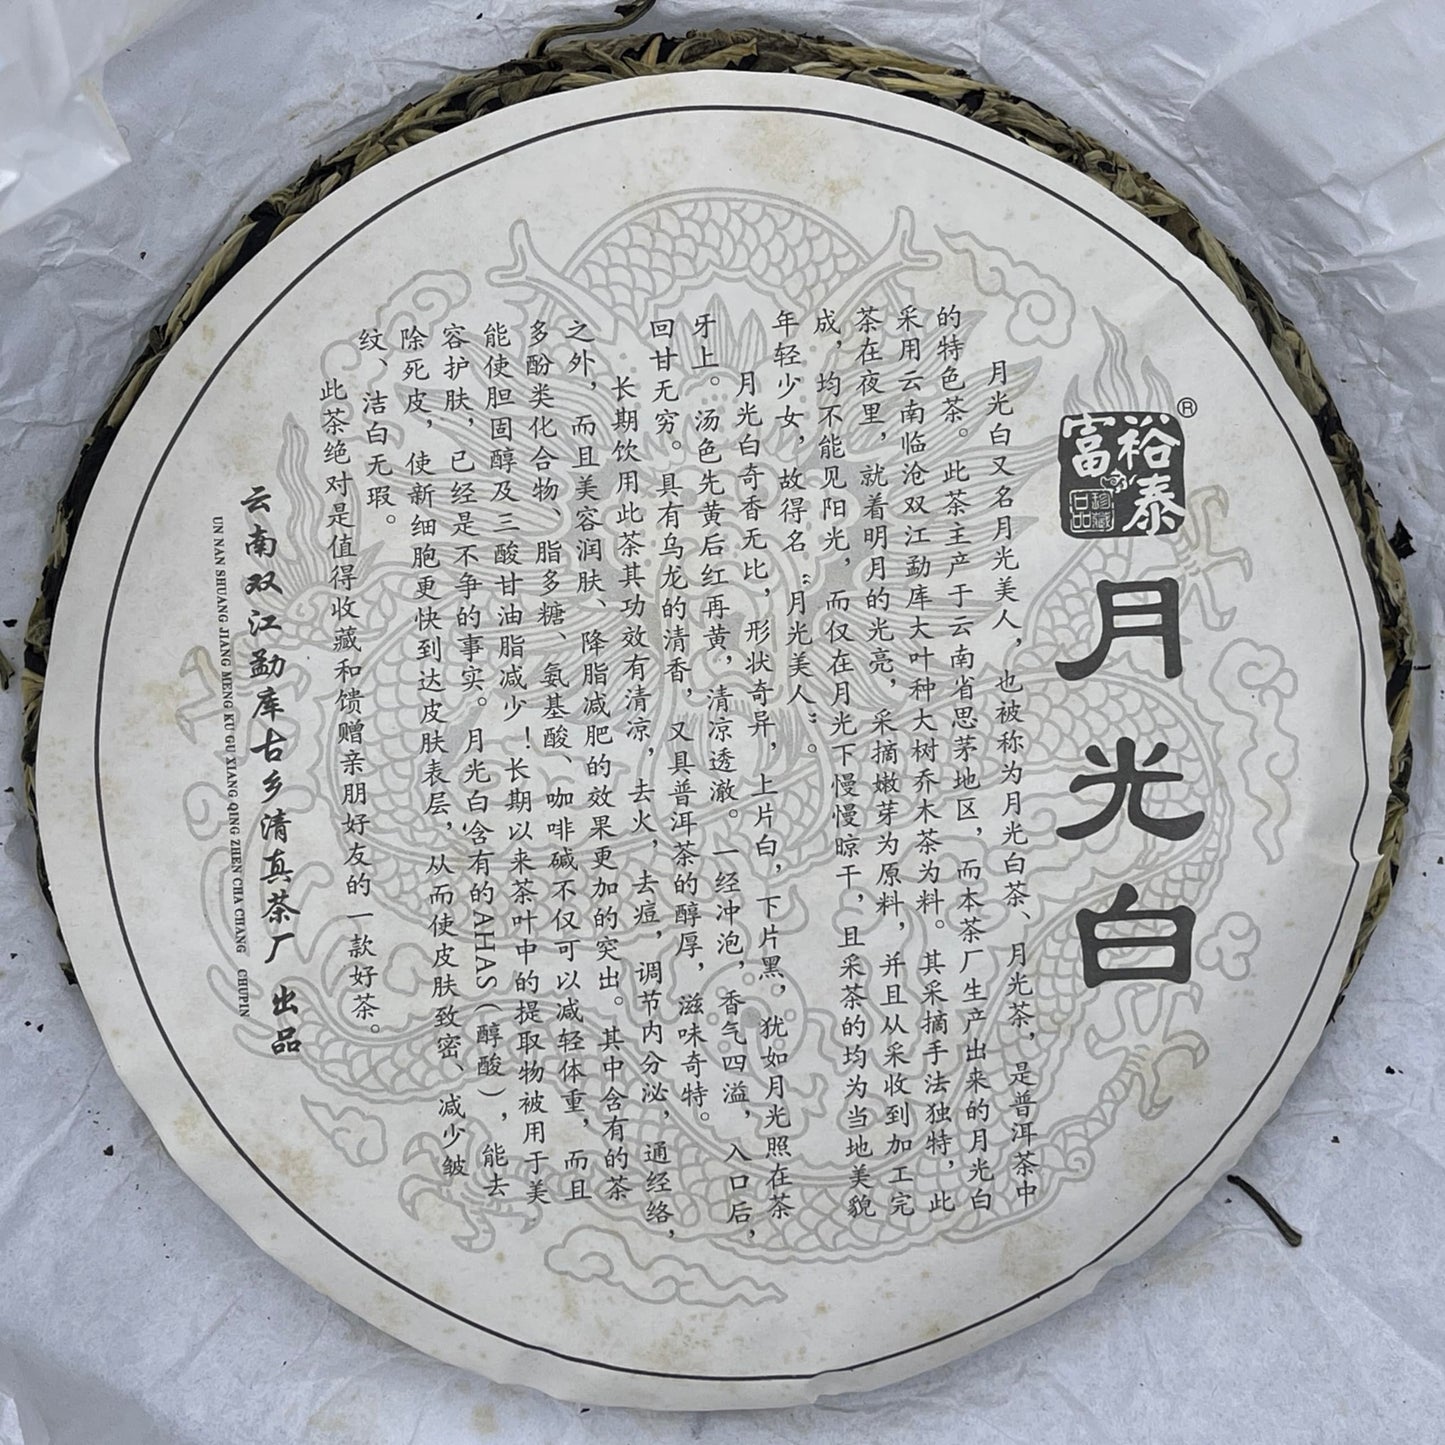 裕泰
富
珍藏
品
®
月光白
月光白又名月光美人，也被称为月光白茶、月光茶，是普洱茶中
的特色茶。此茶主产于云南省思茅地区，而本茶厂生产出来的月光白
采用云南临沧双江勐库大叶种大树乔木茶为料。其采摘手法独特，此
茶在夜里，就着明月的光亮，采摘嫩芽为原料，并且从采收到加工完
成，均不能见阳光，而仅在月光下慢慢晾干，且采茶的均为当地美貌
年轻少女，故得名“月光美人”。
月光白奇香无比，形状奇异，上片白，下片黑，犹如月光照在茶
牙上。汤色先黄后红再黄，清凉透澈。一经冲泡，香气四溢，入口后，
回甘无穷。具有乌龙的清香，又具普洱茶的醇厚，滋味奇特。
长期饮用此茶其功效有清凉，去火，去痘，调节内分泌，通经络，
之外，而且美容润肤、降脂减肥的效果更加的突出。其中含有的茶
多酚类化合物、脂多糖、氨基酸、咖啡碱不仅可以减轻体重，而且
能使胆固醇及三酸甘油脂减少！长期以来茶叶中的提取物被用于美
容护肤，已经是不争的事实。月光白含有的AHAS（醇酸），能去
除死皮，使新细胞更快到达皮肤表层，从而使皮肤致密、减少皱
纹、洁白无瑕。
此茶绝对是值得收藏和馈赠亲朋好友的一款好茶。
云南双江勐库古乡清真茶厂 出品
UN NAN SHUANG JIANG MENG KU GU XIANG QING ZHEN CHA CHANG CHUPIN